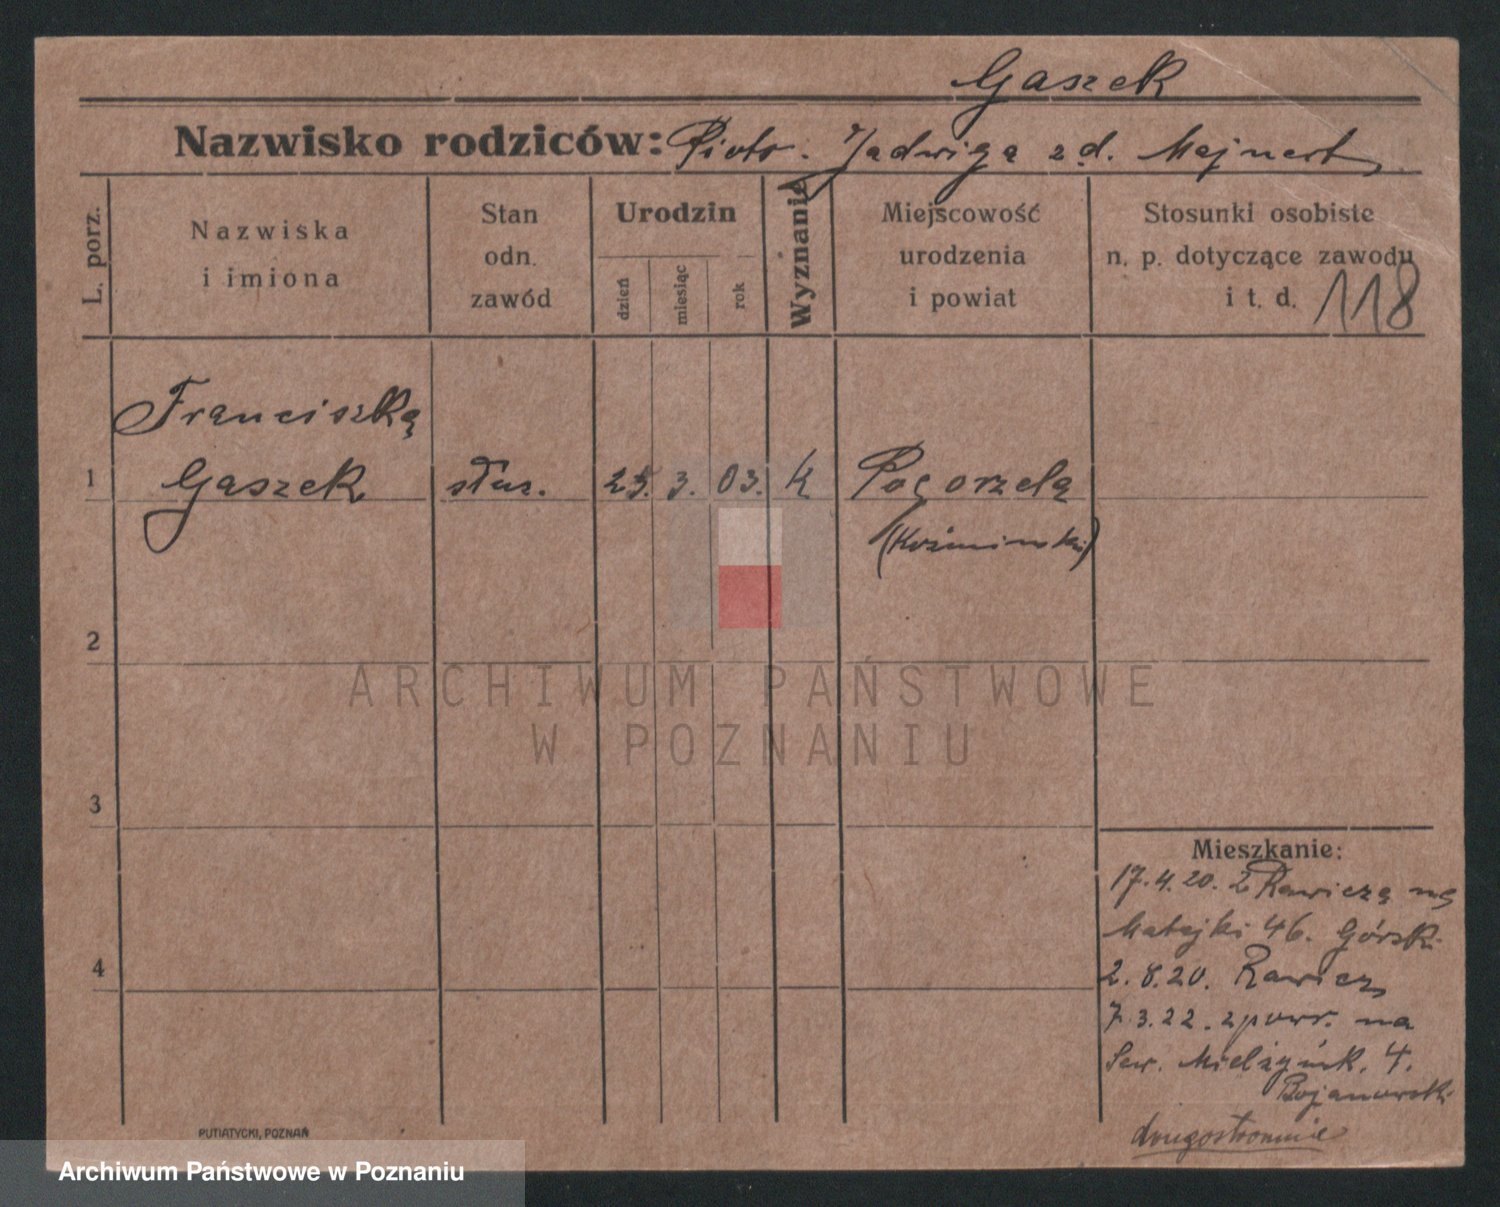 Gaszek
Nazwisko rodziców: Piotr. Jadwiga z d. Majnert
L. porz.
Nazwiska
i imiona
Stan
odn.
zawód
Urodzin
dzień
miesiąc
rok
Wyznanie
Miejscowość
urodzenia
i powiat
Stosunki osobiste
n. p. dotyczące zawodu
i t. d.
118
Franciszka
1 Gaszek służ. 25. 3. 03. K Pogorzela
(Koźmiński)
2
ARCHIWUM PAŃSTWOWE
W POZNANIU
3
Mieszkanie:
17.4.20. z Rawicza na
Matejki 46. Górsk.
4
2.8.20. Rawicz
7.3.22. z powr. na
Sew. Mielżyńsk. 4.
Bojanowski
drugostronnie
PUTIATYCKI, POZNAŃ
Archiwum Państwowe w Poznaniu